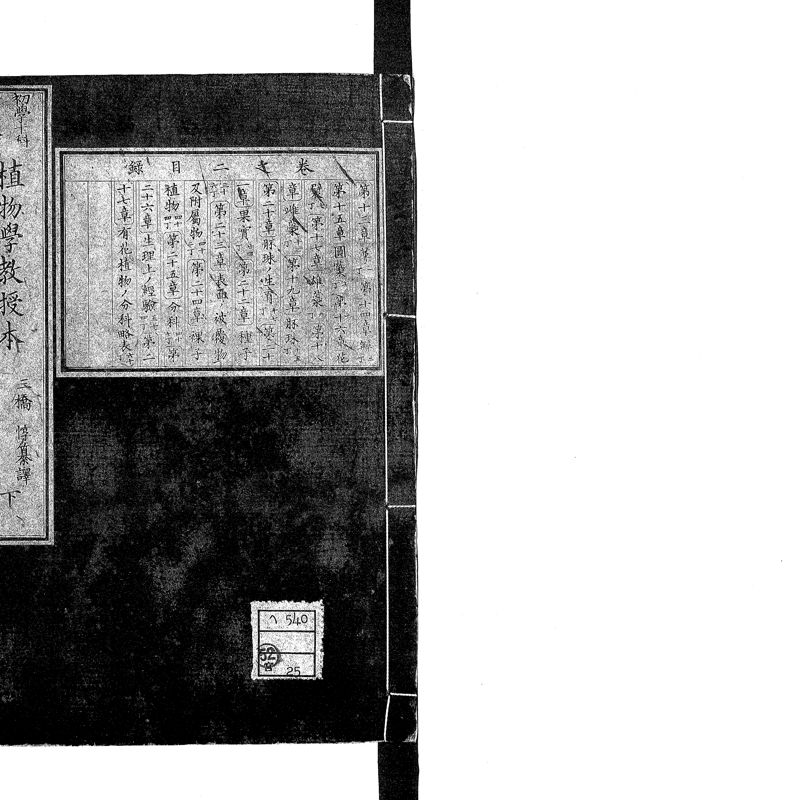 卷之二目録
第十三章
第十四章
第十五章圓葉 第十六章花
第十七章雄蕊 第十八
章雌蕊 第十九章胚珠
第二十章胚珠ノ生育 第二十
一章果實 第二十二章種子
第二十三章表面ノ被覆物
及附屬物 第二十四章裸子
植物 第二十五章分科 第
二十六章生理上ノ經驗 第二
十七章有花植物ノ分科略表
植物學教授本
三橋惇纂譯
下
ヘ 540
52
25